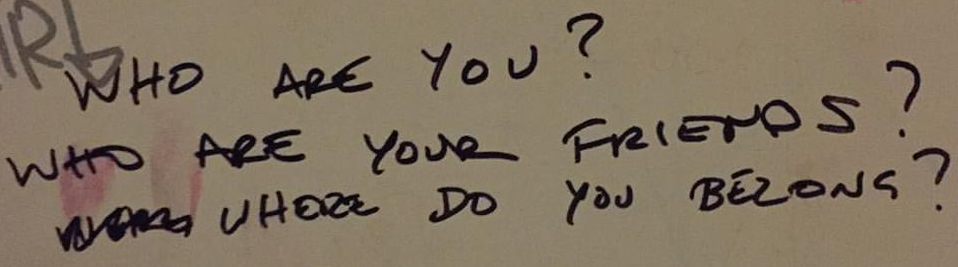 WHO ARE YOU?
WHO ARE YOUR FRIENDS?
WHERE DO YOU BELONG?